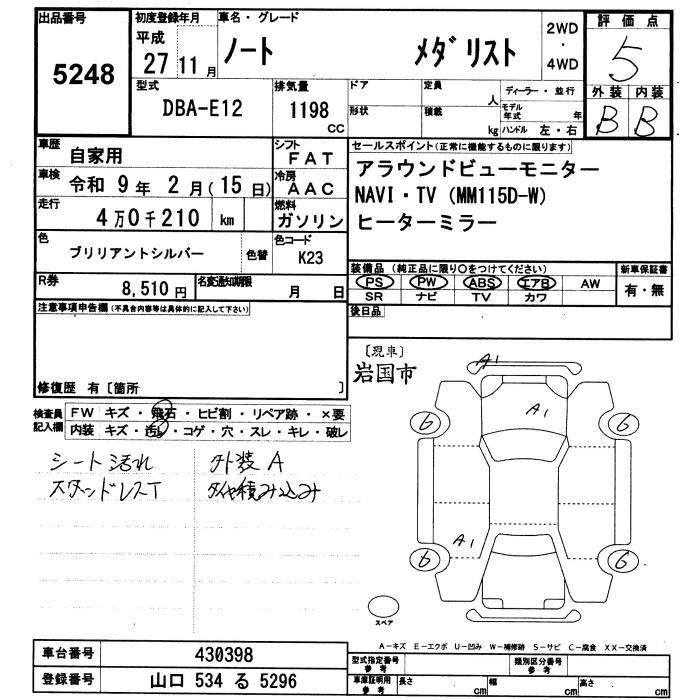 出品番号
5248
初度登録年月
平成
27 11 月
車名・グレード
ノート メダリスト
2WD
・
4WD
評価点
5
外装 内装
B B
型式
DBA-E12
排気量
1198
CC
ドア
形状
定員
人
積載
kg
ディーラー・並行
モデル年式 年
ハンドル 左・右
車歴
自家用
シフト
FAT
車検
令和 9 年 2 月(15 日)
冷房
AAC
走行
4 万 0 千 210 km
燃料
ガソリン
色
ブリリアントシルバー
色替
色コード
K23
R券
8,510 円
名変通知期限
月 日
セールスポイント(正常に機能するものに限ります)
アラウンドビューモニター
NAVI・TV (MM115D-W)
ヒーターミラー
装備品(純正品に限り○をつけてください)
PS PW ABS エアB AW
SR ナビ TV カワ
新車保証書
有・無
後日品
注意事項申告欄(不具合内容等は具体的に記入して下さい)
修復歴 有〔箇所 〕
〔現車〕
岩国市
検査員記入欄
FW キズ・飛石・ヒビ割・リペア跡・×要
内装 キズ・汚れ・コゲ・穴・スレ・キレ・破レ
シート汚れ 外装A
スタッドレスT タイヤ積み込み
A1
A1
6 6
A1
6 6
スペア
A-キズ E-エクボ U-凹み W-補修跡 S-サビ C-腐食 XX-交換済
車台番号
430398
登録番号
山口 534 る 5296
型式指定番号
参考
類別区分番号
参考
車庫証明用
参考
長さ cm
幅 cm
高さ cm